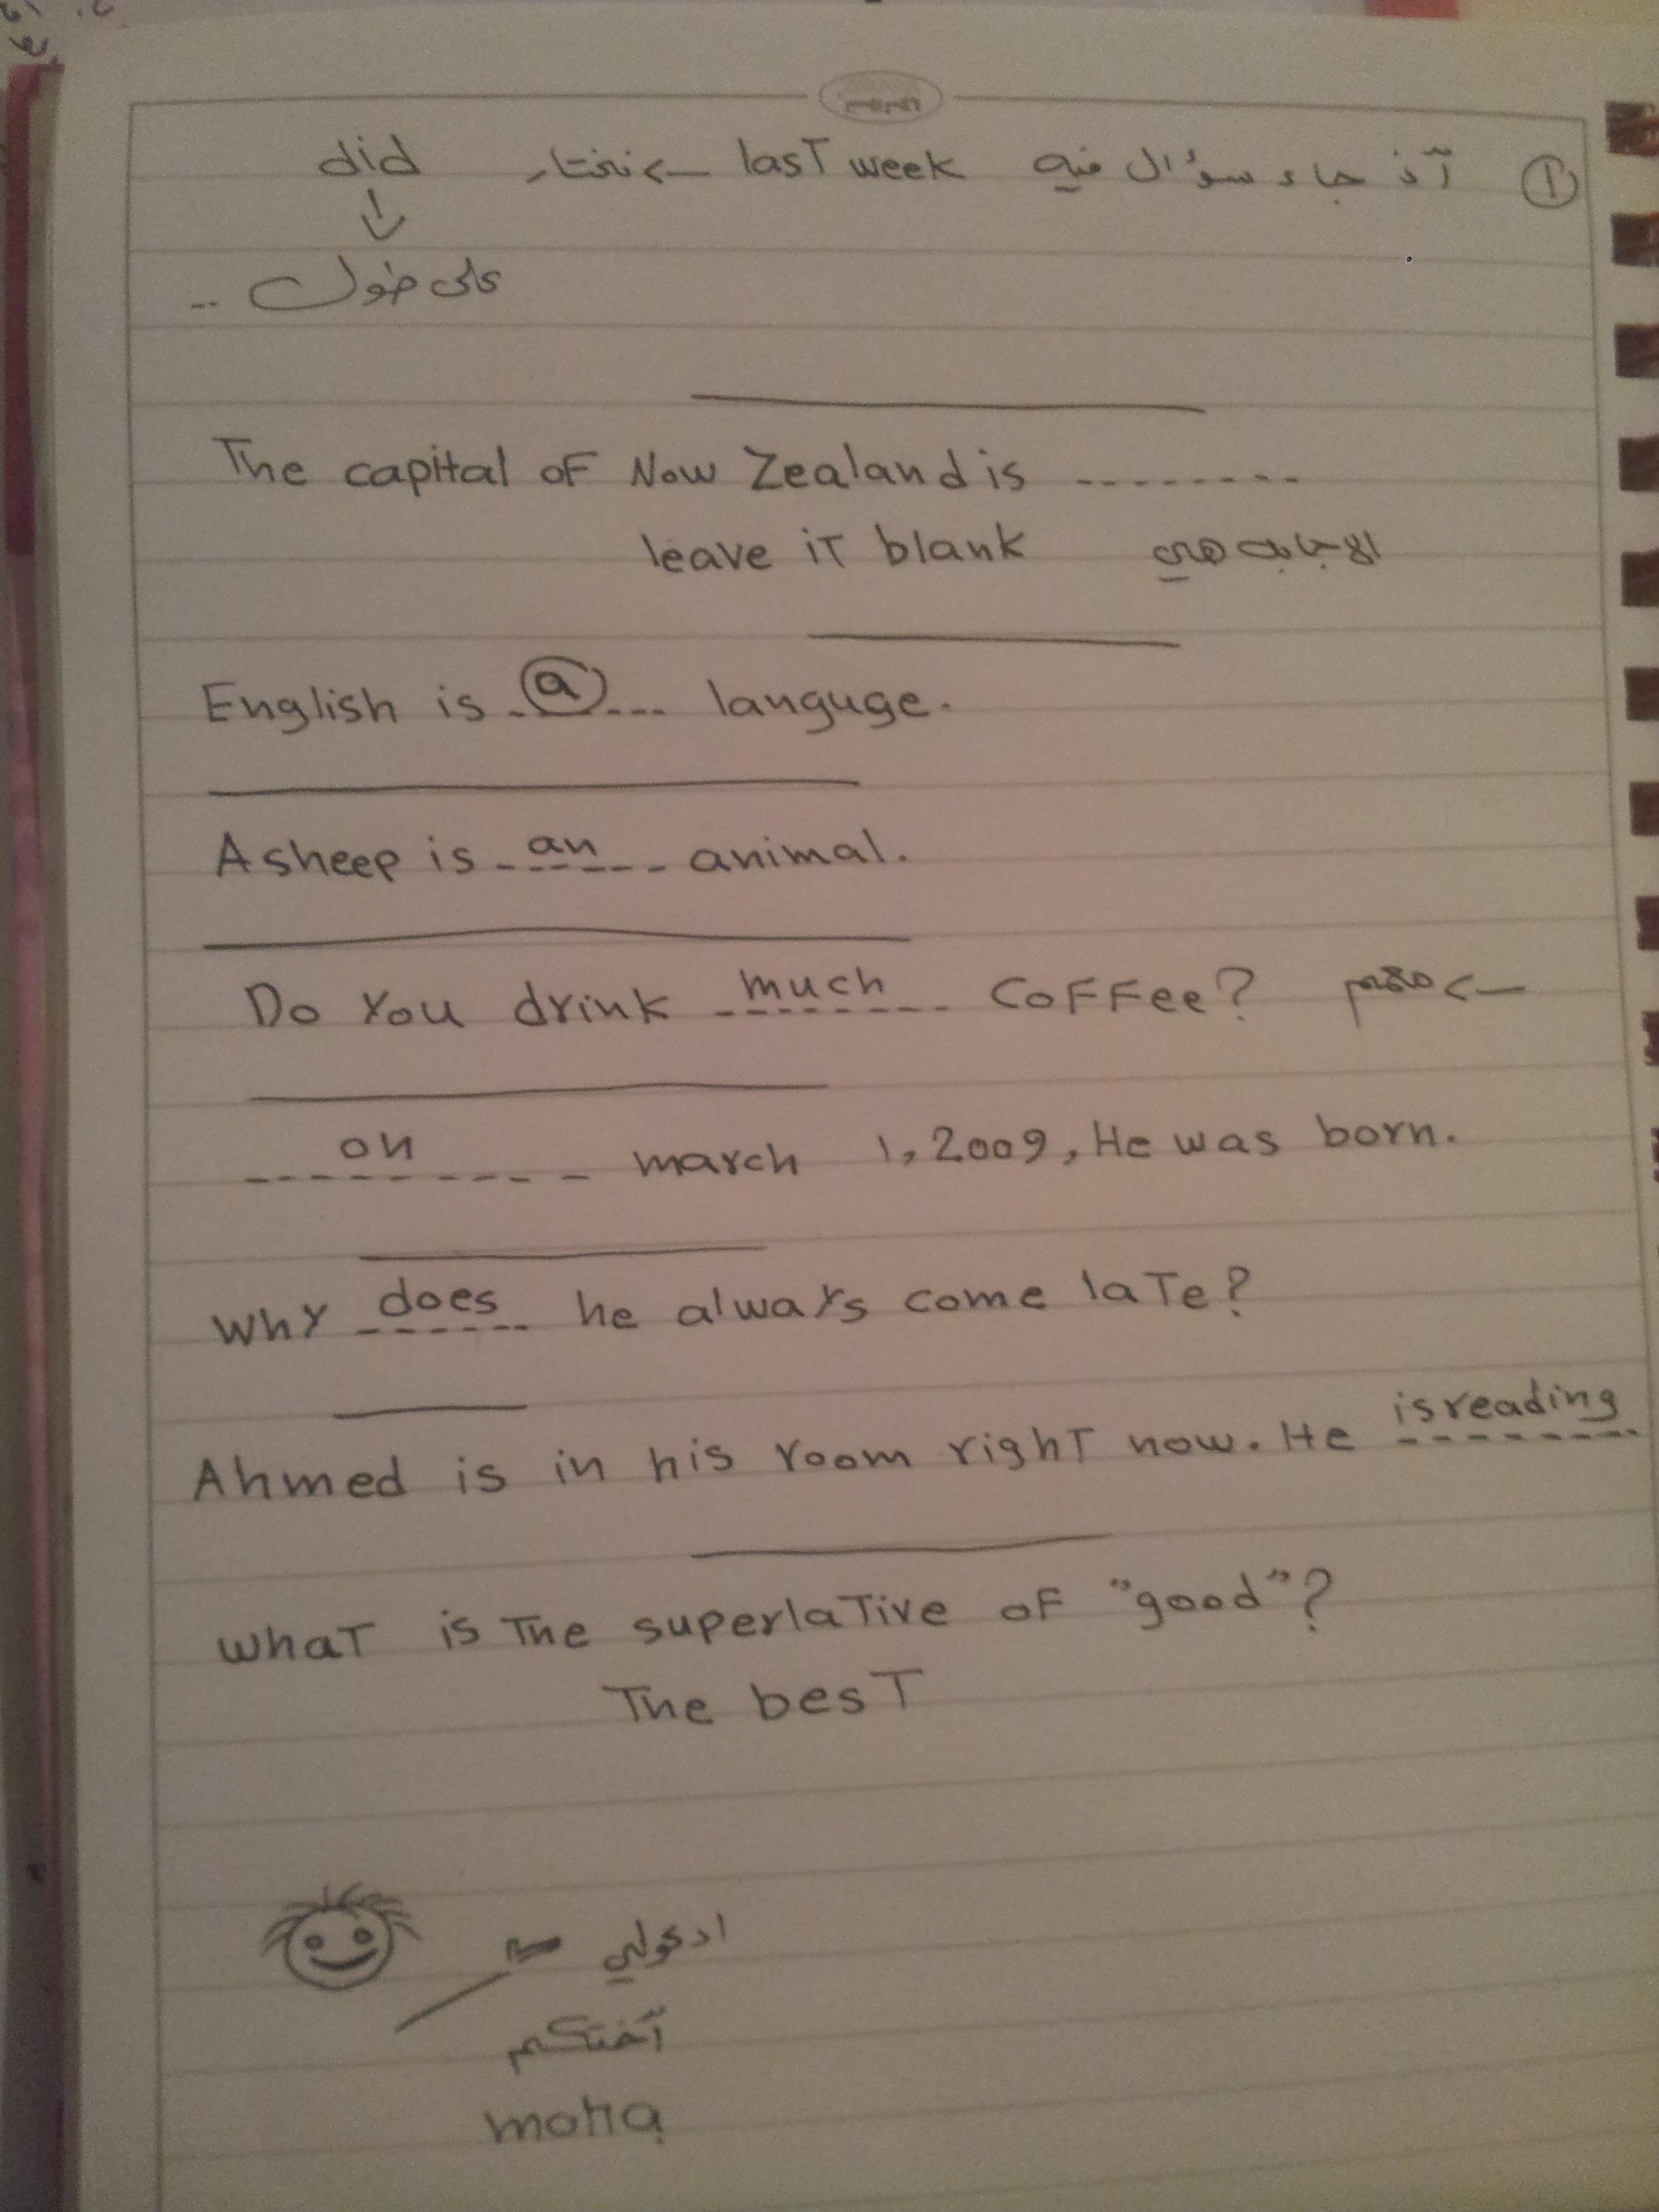 ① آذ جاء سؤال فيه last week <— نختار did
على طول ..
The capital of Now Zealand is --------
الاجابه هي leave it blank
English is a languge.
A sheep is an animal.
Do You drink much Coffee? <— مهم
on march 1, 2009, He was born.
Why does he always come late?
Ahmed is in his room right now. He is reading
What is The superlative of "good"?
The best
ادعولي
آختكم